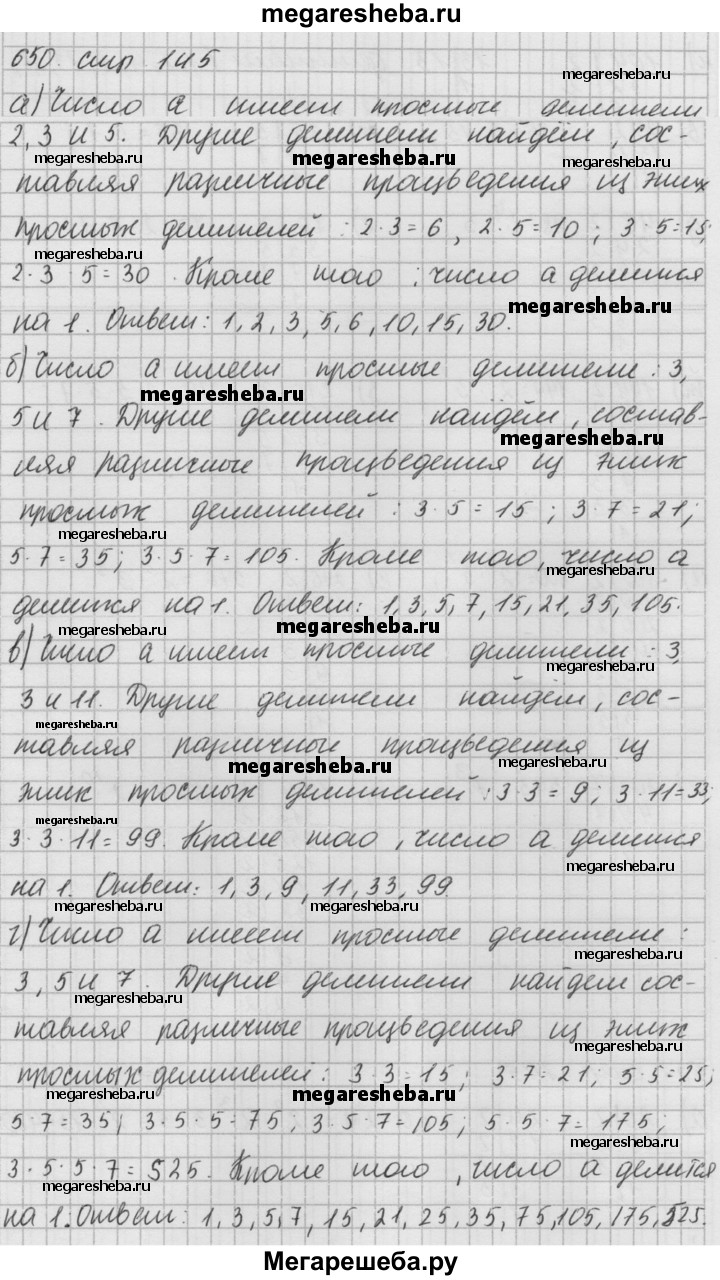 megaresheba.ru
650. стр 145
megaresheba.ru
а) Число а имеет простые делители
2, 3 и 5. Другие делители найдём, сос-
megaresheba.ru megaresheba.ru megaresheba.ru
тавляя различные произведения из этих
простых делителей : 2·3=6, 2·5=10; 3·5=15;
megaresheba.ru
2·3 5=30. Кроме того, число а делится
megaresheba.ru
на 1. Ответ: 1, 2, 3, 5, 6, 10, 15, 30.
б) Число а имеет простые делители : 3,
megaresheba.ru megaresheba.ru
5 и 7. Другие делители найдём, состав-
megaresheba.ru
ляя различные произведения из этих
простых делителей : 3·5=15; 3·7=21;
megaresheba.ru
5·7=35; 3·5·7=105. Кроме того, число а
megaresheba.ru
делится на 1. Ответ: 1, 3, 5, 7, 15, 21, 35, 105.
megaresheba.ru megaresheba.ru
в) Число а имеет простые делители : 3,
megaresheba.ru
3 и 11. Другие делители найдём, сос-
megaresheba.ru
тавляя различные произведения из
megaresheba.ru
этих простых делителей : 3·3=9; 3·11=33;
megaresheba.ru
3·3·11=99. Кроме того, число а делится
megaresheba.ru
на 1. Ответ: 1, 3, 9, 11, 33, 99
megaresheba.ru megaresheba.ru
г) Число а имеет простые делители :
megaresheba.ru
3, 5 и 7. Другие делители найдем сос-
megaresheba.ru
тавляя различные произведения из этих
megaresheba.ru
простых делителей : 3 3=15; 3·7=21; 5·5=25;
megaresheba.ru
5·7=35; 3·5·5=75; 3·5·7=105; 5·5·7=175;
megaresheba.ru
3·5·5·7=525. Кроме того, число а делится
megaresheba.ru
на 1. Ответ: 1, 3, 5, 7, 15, 21, 25, 35, 75, 105, 175, 525.
Мегарешеба.ру